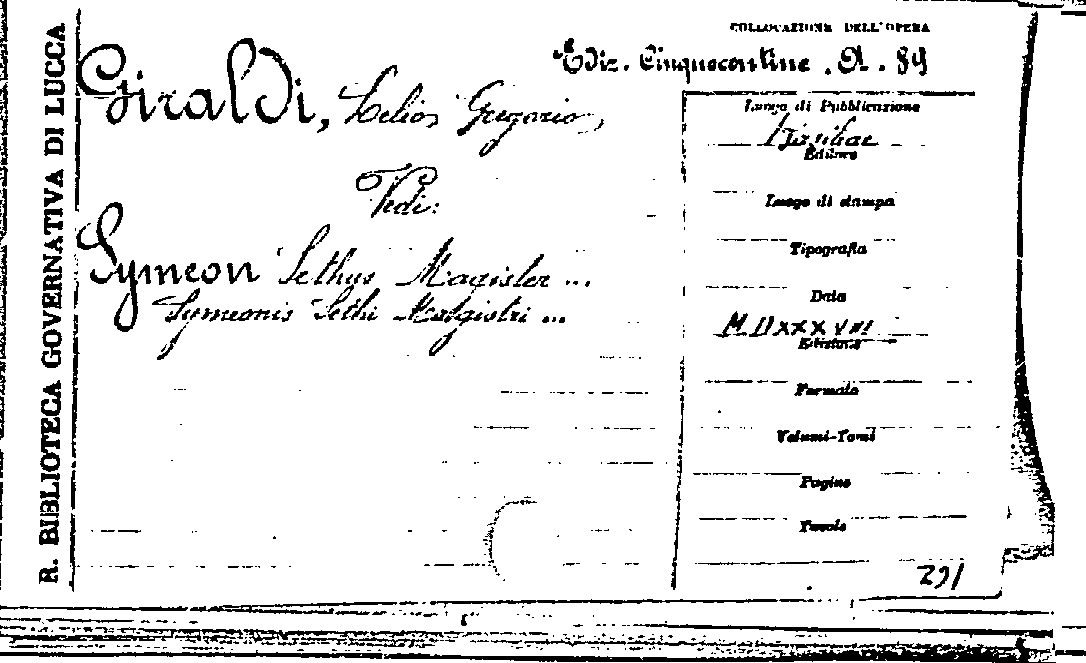 R. BIBLIOTECA GOVERNATIVA DI LUCCA
COLLOCAZIONE DELL'OPERA
Ediz. Cinquecentine . A . 89
Giraldi, Lelios Gregorio,
Vedi:
Symeon Sethus Magister ...
Symeonis Sethi Magistri ...
Luogo di Pubblicazione
Editore
Luogo di stampa
Tipografia
Data
MDXXXVIII
Edizione
Formato
Volumi-Tomi
Pagine
Tavole
291